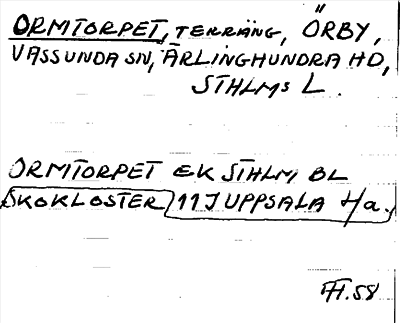 ORMTORPET, TERRÄNG, ÖRBY,
VASSUNDA SN, ÄRLINGHUNDRA HD,
STHLMS L.
ORMTORPET EK STHLM BL
SKOKLOSTER 11 J UPPSALA
58